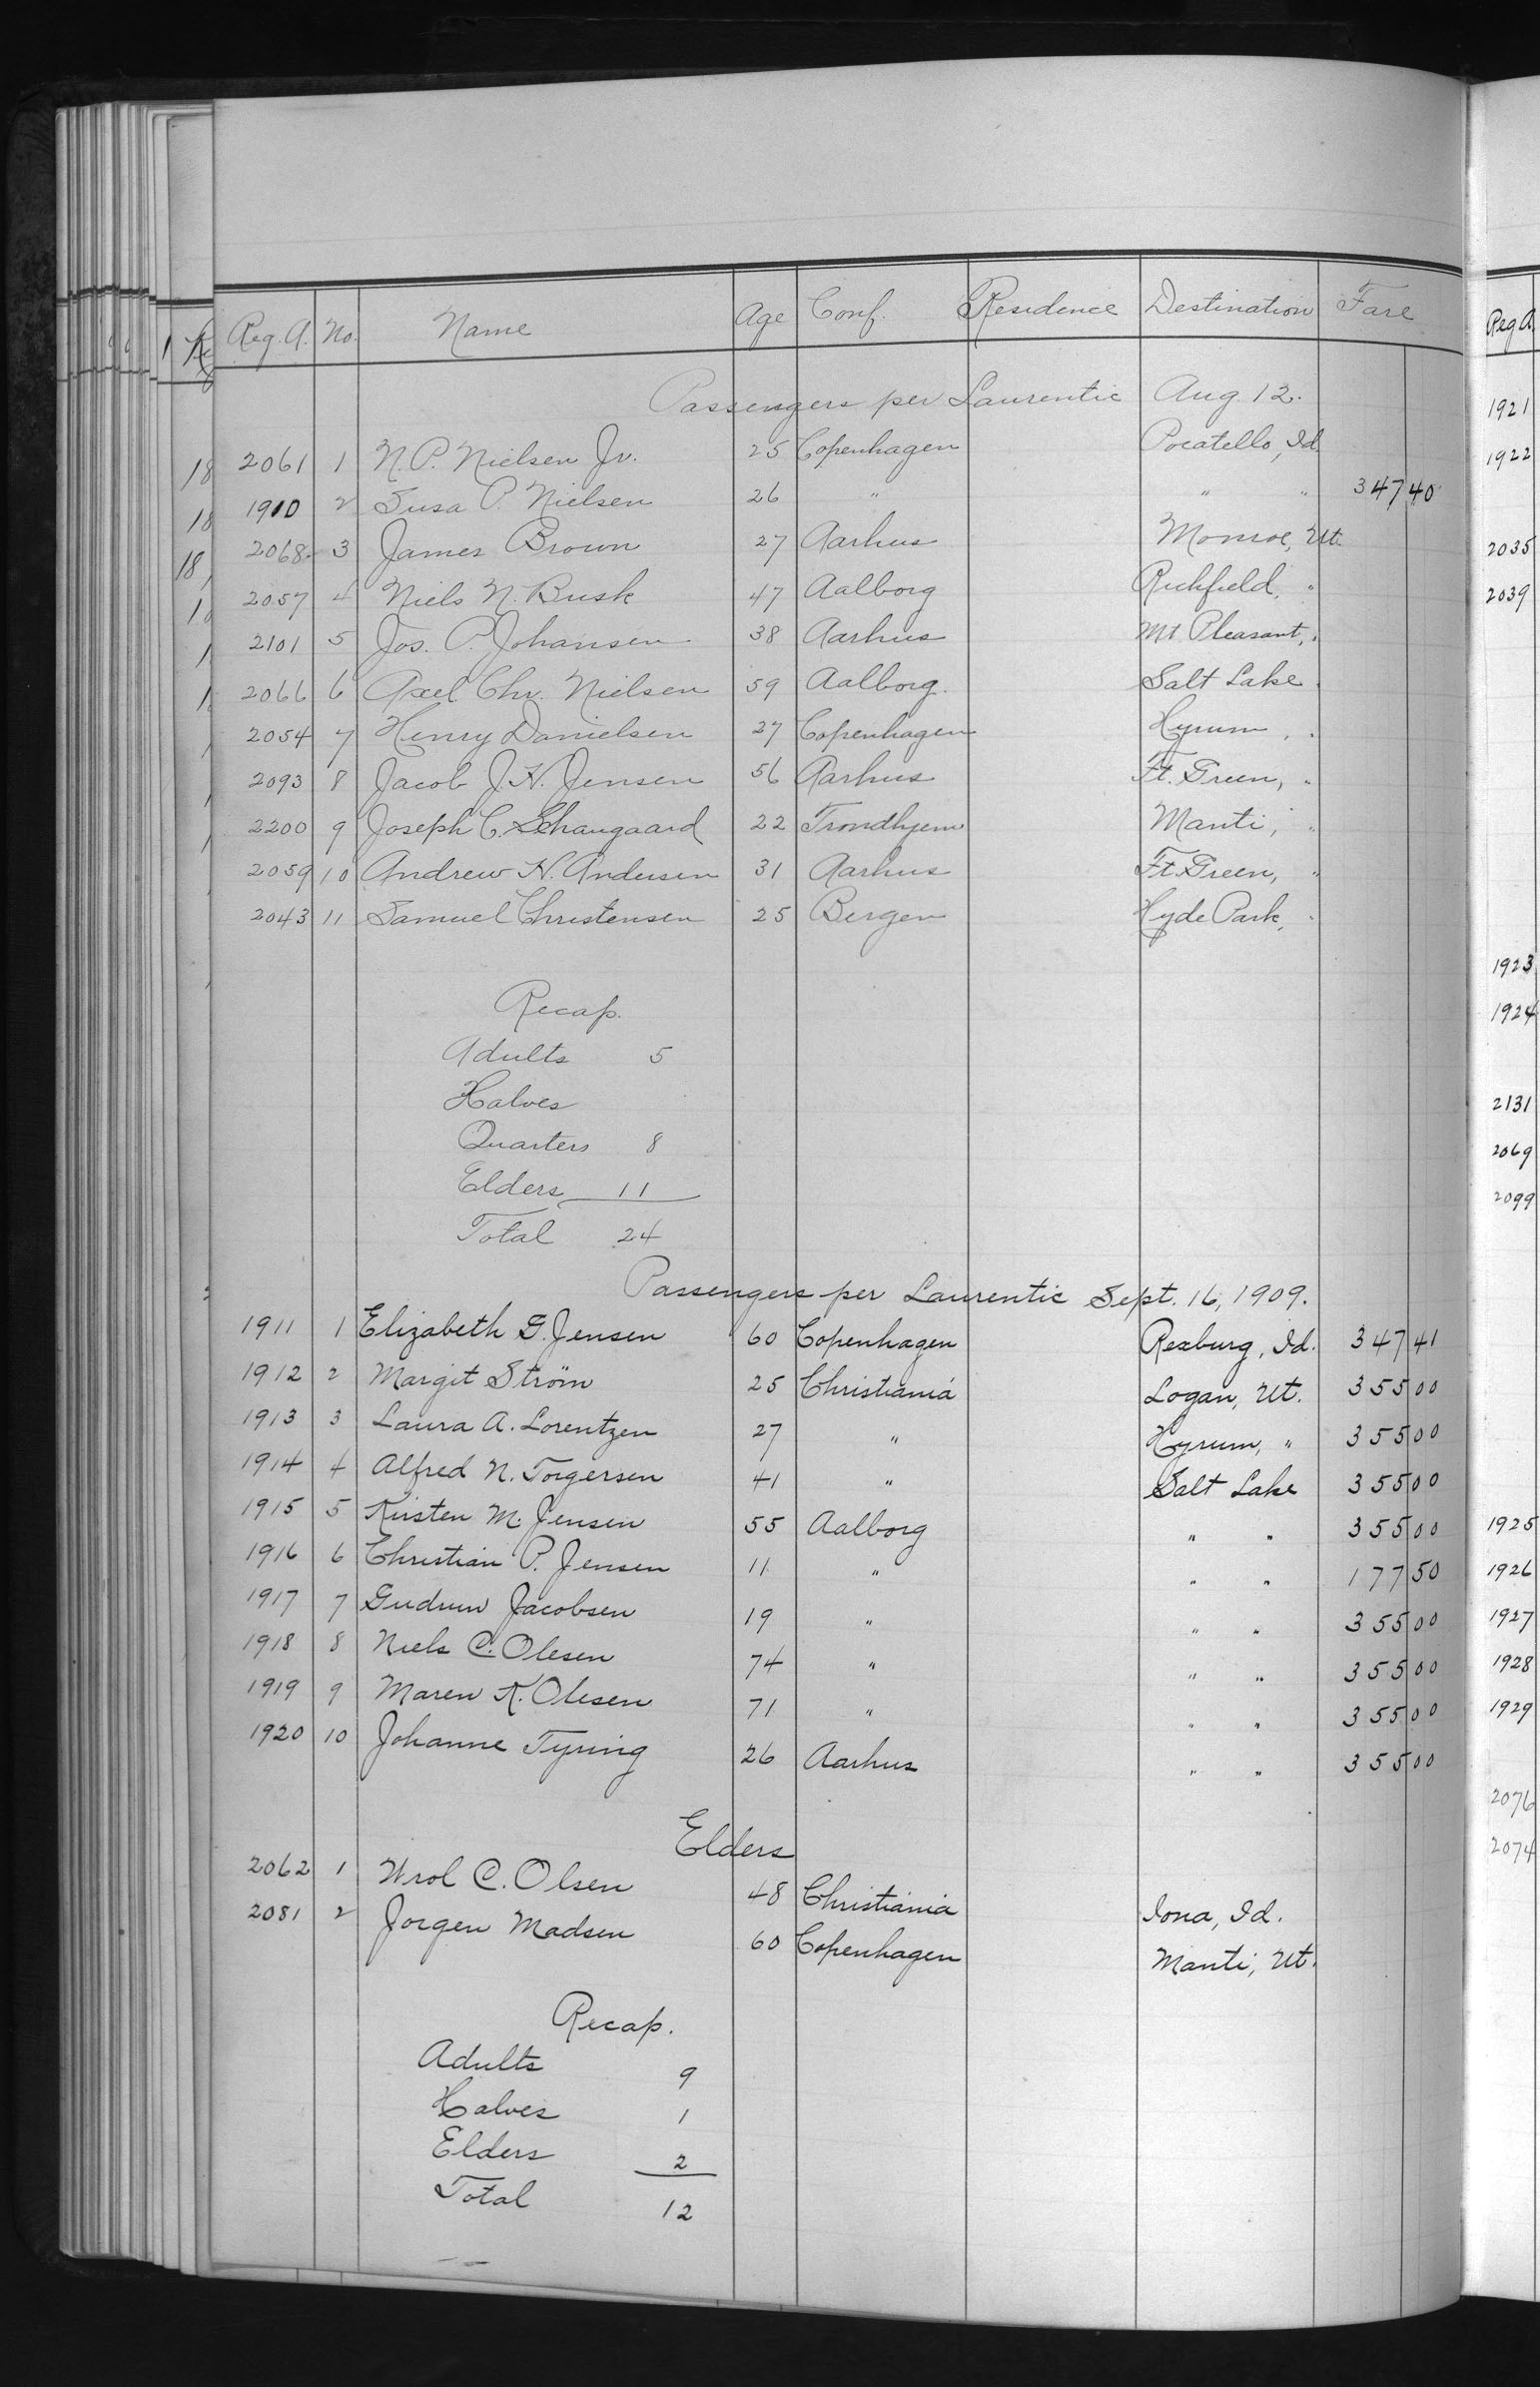 Reg. A. No. Name Age Conf. Residence Destination Fare
Passengers per Laurentic Aug 12.
2061 1 N. P. Nielsen Jr. 25 Copenhagen Pocatello, Id.
1910 2 Susa P. Nielsen 26 " " " 347 40
2068 3 James Brown 27 Aarhus Monroe, Ut.
2057 4 Niels N. Busk 47 Aalborg Richfield, "
2101 5 Jos. P. Johansen 38 Aarhus Mt Pleasant, "
2066 6 Axel Chr. Nielsen 59 Aalborg. Salt Lake "
2054 7 Henry Danielsen 27 Copenhagen Hyrum, "
2093 8 Jacob J. H. Jensen 56 Aarhus Ft. Green, "
2200 9 Joseph C. 22 Trondhjem Manti, "
2059 10 Andrew H. Andersen 31 Aarhus Ft. Green, "
2043 11 Samuel Christensen 25 Bergen Hyde Park, "
Recap.
Adults 5
Halves
Quarters 8
Elders 11
Total 24
Passengers per Laurentic Sept. 16, 1909.
1911 1 Elizabeth G. Jensen 60 Copenhagen Rexburg, Id. 347 41
1912 2 Margit Ström 25 Christiania Logan, Ut. 355 00
1913 3 Laura A. Lorentzen 27 " Hyrum, " 355 00
1914 4 Alfred N. Torgersen 41 " Salt Lake 355 00
1915 5 Kirsten M. Jensen 55 Aalborg " " 355 00
1916 6 Christian P. Jensen 11 " " " 177 50
1917 7 Gudrun Jacobsen 19 " " " 355 00
1918 8 Niels C. Olesen 74 " " " 355 00
1919 9 Maren K. Olesen 71 " " " 355 00
1920 10 Johanne Tyring 26 Aarhus " " 355 00
Elders
2062 1 Wrol C. Olsen 48 Christiania Iona, Id.
2081 2 Jorgen Madsen 60 Copenhagen Manti, Ut.
Recap.
Adults 9
Halves 1
Elders 2
Total 12
Reg A.
1921
1922
2035
2039
1923
1924
2131
2069
2099
1925
1926
1927
1928
1929
2076
2074